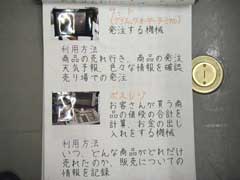 発注する機械
利用方法
商品の売れ行き、商品の発注
天気予報、色々な情報を確認
売り場での発注
ポスレジ
お客さんが買う商
品の値段の合計を
計算、お金の出し
入れをする機械
利用方法
いつ、どんな商品がどれだけ
売れたのか、販売についての
情報を記録